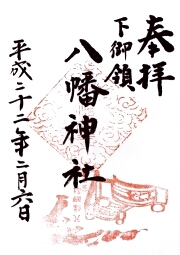 奉拝
下御領
八幡神社
平成二十二年二月六日